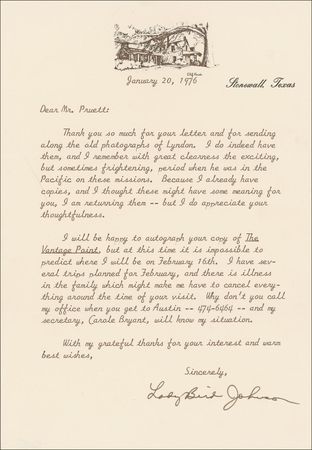 January 20, 1976
Stonewall, Texas
Dear Mr. Pruett:
Thank you so much for your letter and for sending
along the old photographs of Lyndon. I do indeed have
them, and I remember with great clearness the exciting,
but sometimes frightening, period when he was in the
Pacific on these missions. Because I already have
copies, and I thought these might have some meaning for
you, I am returning them -- but I do appreciate your
thoughtfulness.
I will be happy to autograph your copy of The
Vantage Point, but at this time it is impossible to
predict where I will be on February 16th. I have sev-
eral trips planned for February, and there is illness
in the family which might make me have to cancel every-
thing around the time of your visit. Why don't you call
my office when you get to Austin -- 474-6464 -- and my
secretary, Carole Bryant, will know my situation.
With my grateful thanks for your interest and warm
best wishes,
Sincerely,
Lady Bird Johnson